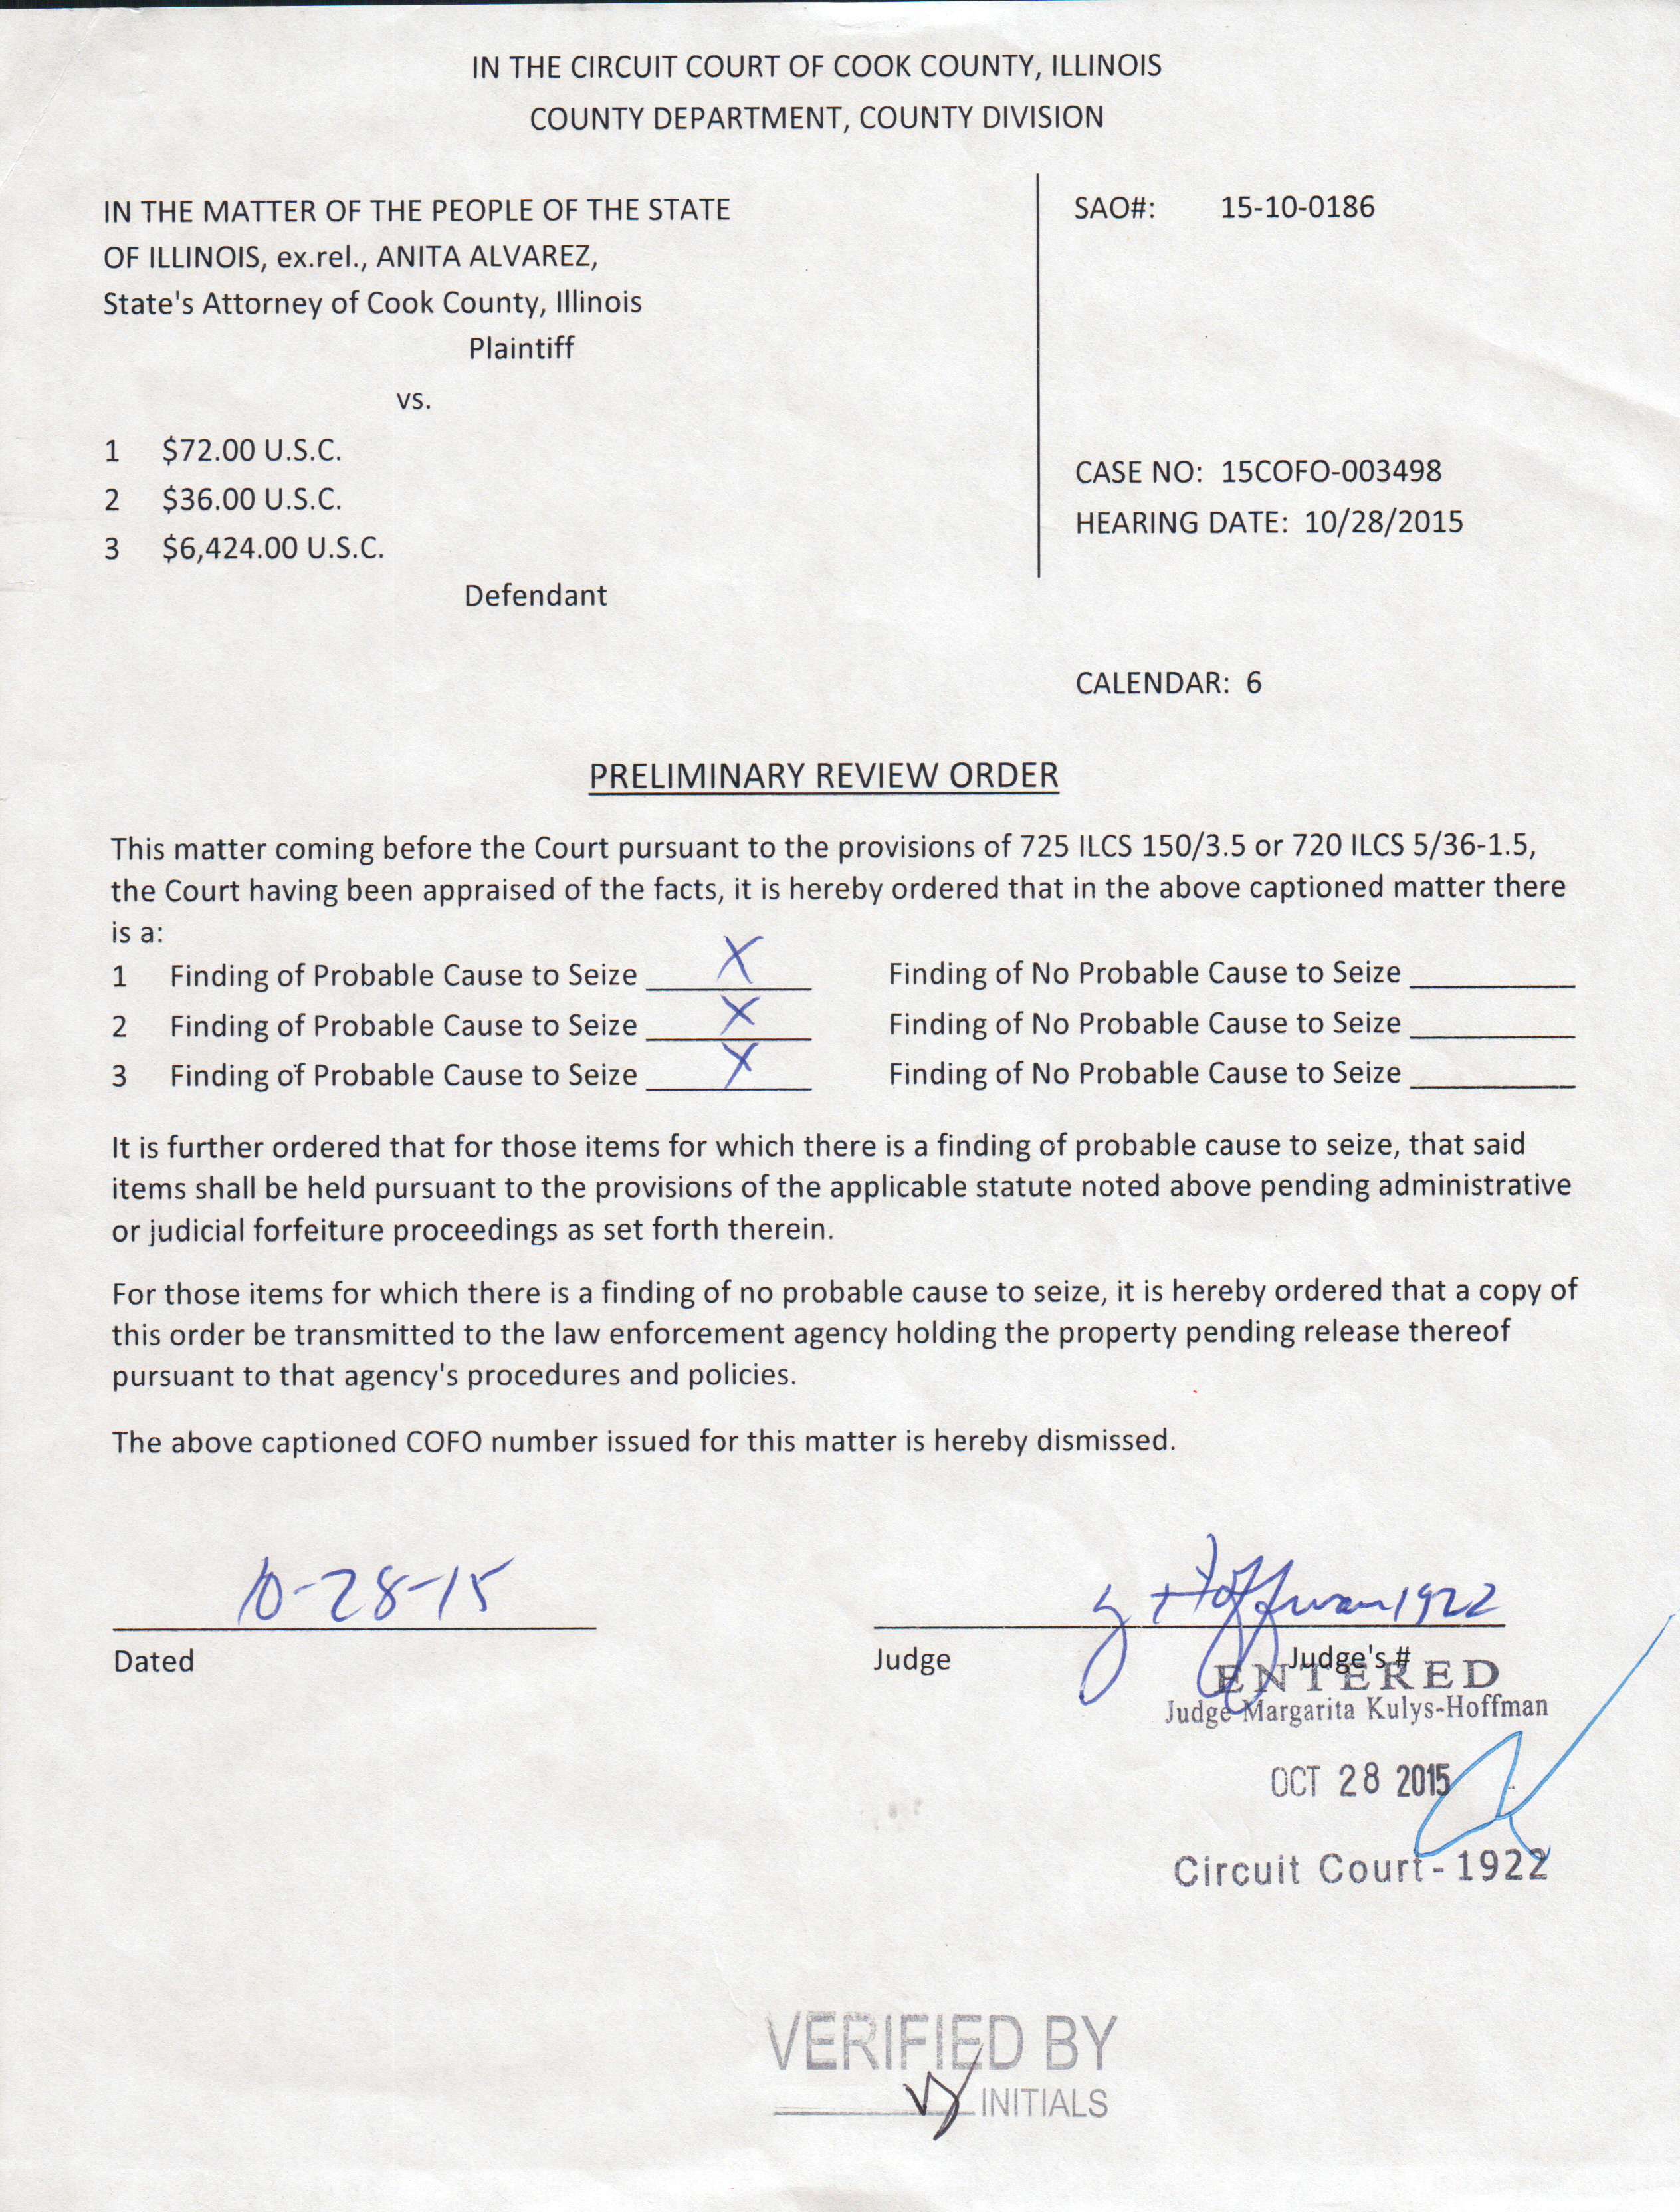 IN THE CIRCUIT COURT OF COOK COUNTY, ILLINOIS
COUNTY DEPARTMENT, COUNTY DIVISION
IN THE MATTER OF THE PEOPLE OF THE STATE
OF ILLINOIS, ex.rel., ANITA ALVAREZ,
State's Attorney of Cook County, Illinois
Plaintiff
vs.
1 $72.00 U.S.C.
2 $36.00 U.S.C.
3 $6,424.00 U.S.C.
Defendant
SAO#: 15-10-0186
CASE NO: 15COFO-003498
HEARING DATE: 10/28/2015
CALENDAR: 6
PRELIMINARY REVIEW ORDER
This matter coming before the Court pursuant to the provisions of 725 ILCS 150/3.5 or 720 ILCS 5/36-1.5,
the Court having been appraised of the facts, it is hereby ordered that in the above captioned matter there
is a:
1 Finding of Probable Cause to Seize X Finding of No Probable Cause to Seize
2 Finding of Probable Cause to Seize X Finding of No Probable Cause to Seize
3 Finding of Probable Cause to Seize X Finding of No Probable Cause to Seize
It is further ordered that for those items for which there is a finding of probable cause to seize, that said
items shall be held pursuant to the provisions of the applicable statute noted above pending administrative
or judicial forfeiture proceedings as set forth therein.
For those items for which there is a finding of no probable cause to seize, it is hereby ordered that a copy of
this order be transmitted to the law enforcement agency holding the property pending release thereof
pursuant to that agency's procedures and policies.
The above captioned COFO number issued for this matter is hereby dismissed.
10-28-15 Hoffman 1922
Dated Judge Judge's #
ENTERED
Judge Margarita Kulys-Hoffman
OCT 28 2015
Circuit Court - 1922
VERIFIED BY
INITIALS